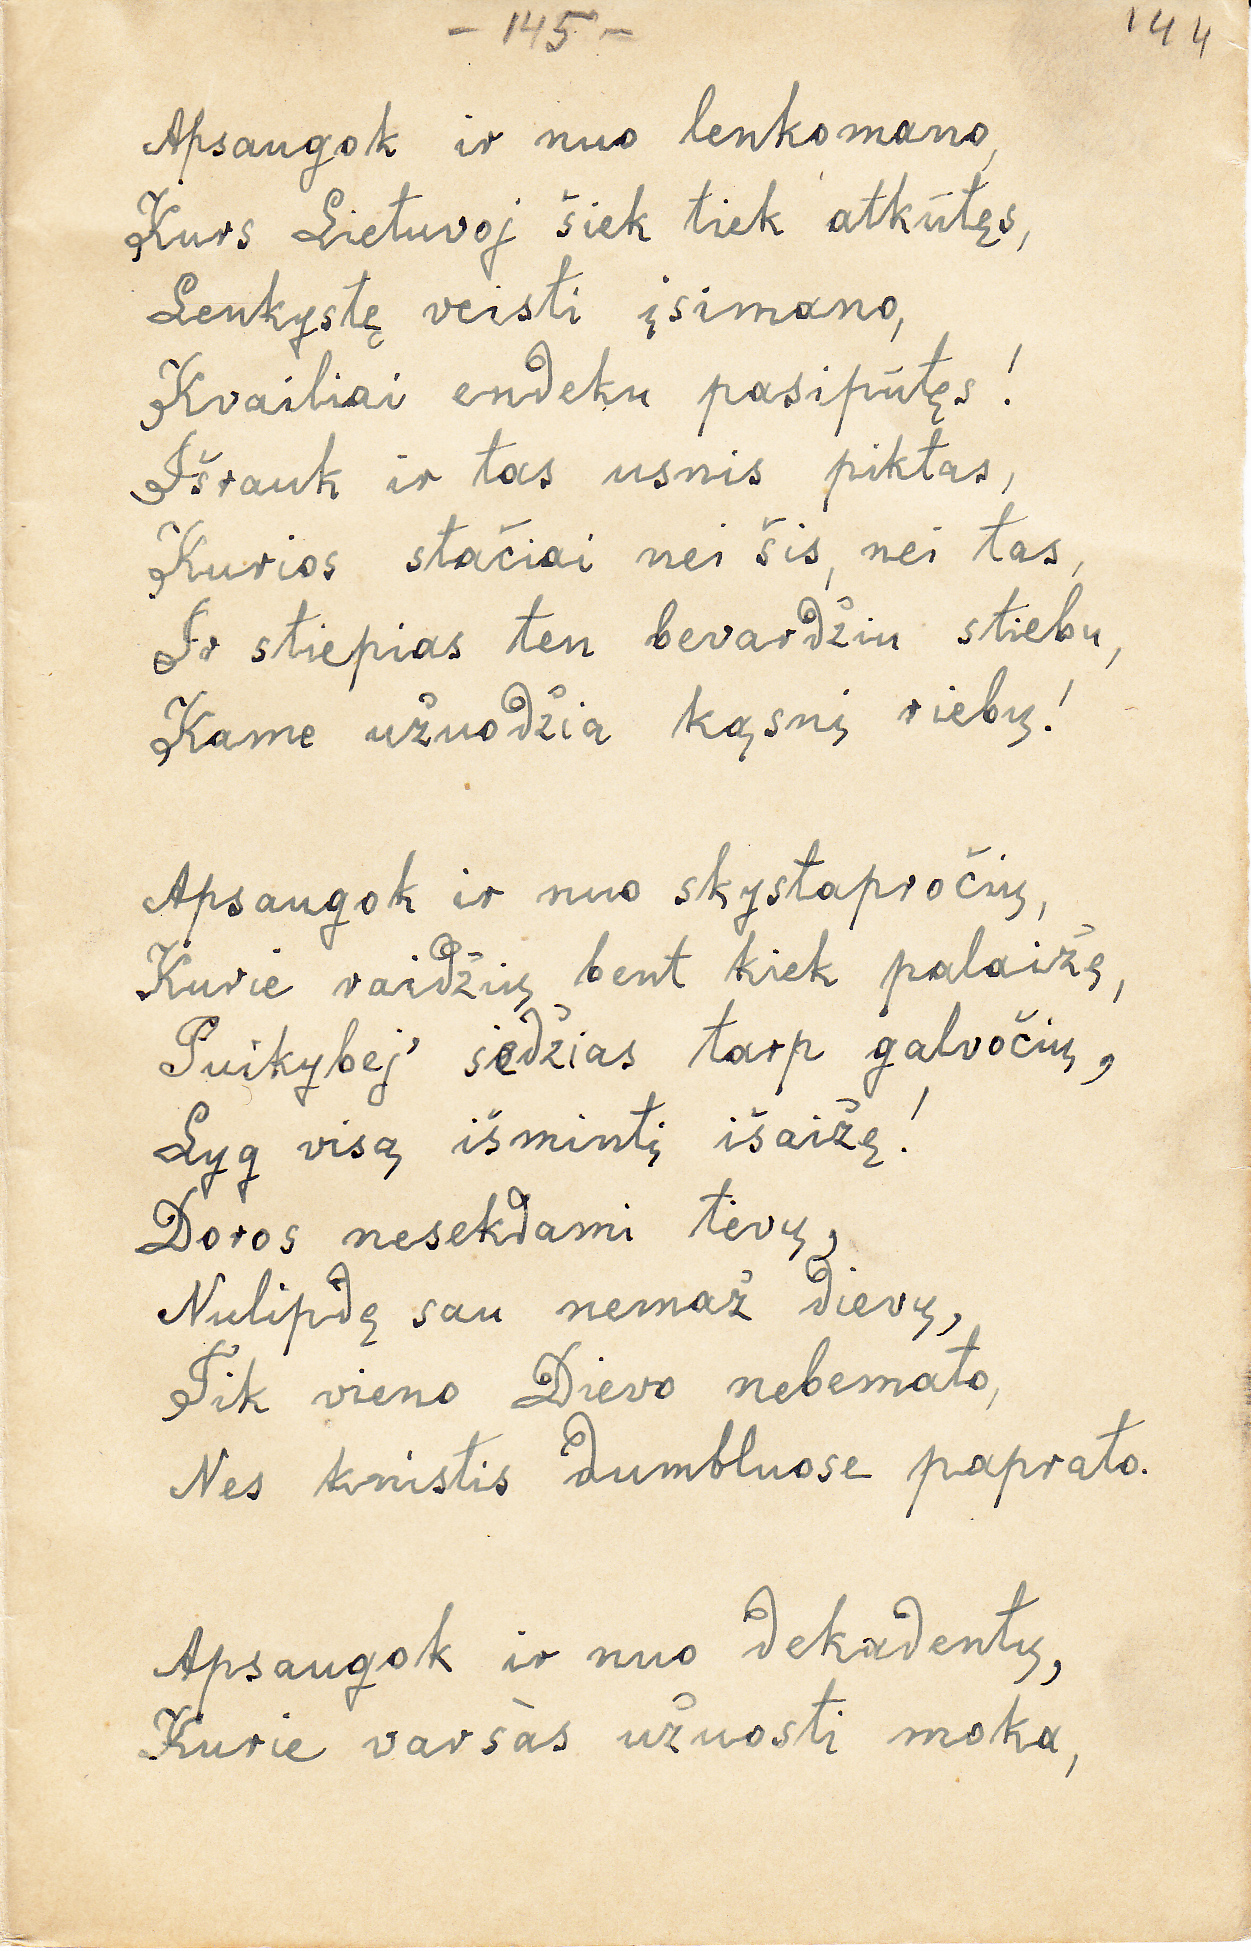 - 145 -
144
Apsaugok ir nuo lenkomano,
Kurs Lietuvoj šiek tiek atkūtęs,
Lenkystę veisti įsimano,
Kvailiai endeku pasipūtęs!
Išrauk ir tas usnis piktas,
Kurios stačiai nei šis, nei tas,
Ir stiepias ten bevardžiu stiebu,
Kame užuodžia kąsnį riebų!
Apsaugok ir nuo skystapročių,
Kurie raidžių bent kiek palaižę,
Puikybej' sėdžias tarp galvočių,
Lyg visą išmintį išaižę!
Doros nesekdami tėvų,
Nulipdę sau nemaž dievų,
Tik vieno Dievo nebemato,
Nes knistis dumbluose paprato.
Apsaugok ir nuo dekadentų,
Kurie varsàs užuosti moka,